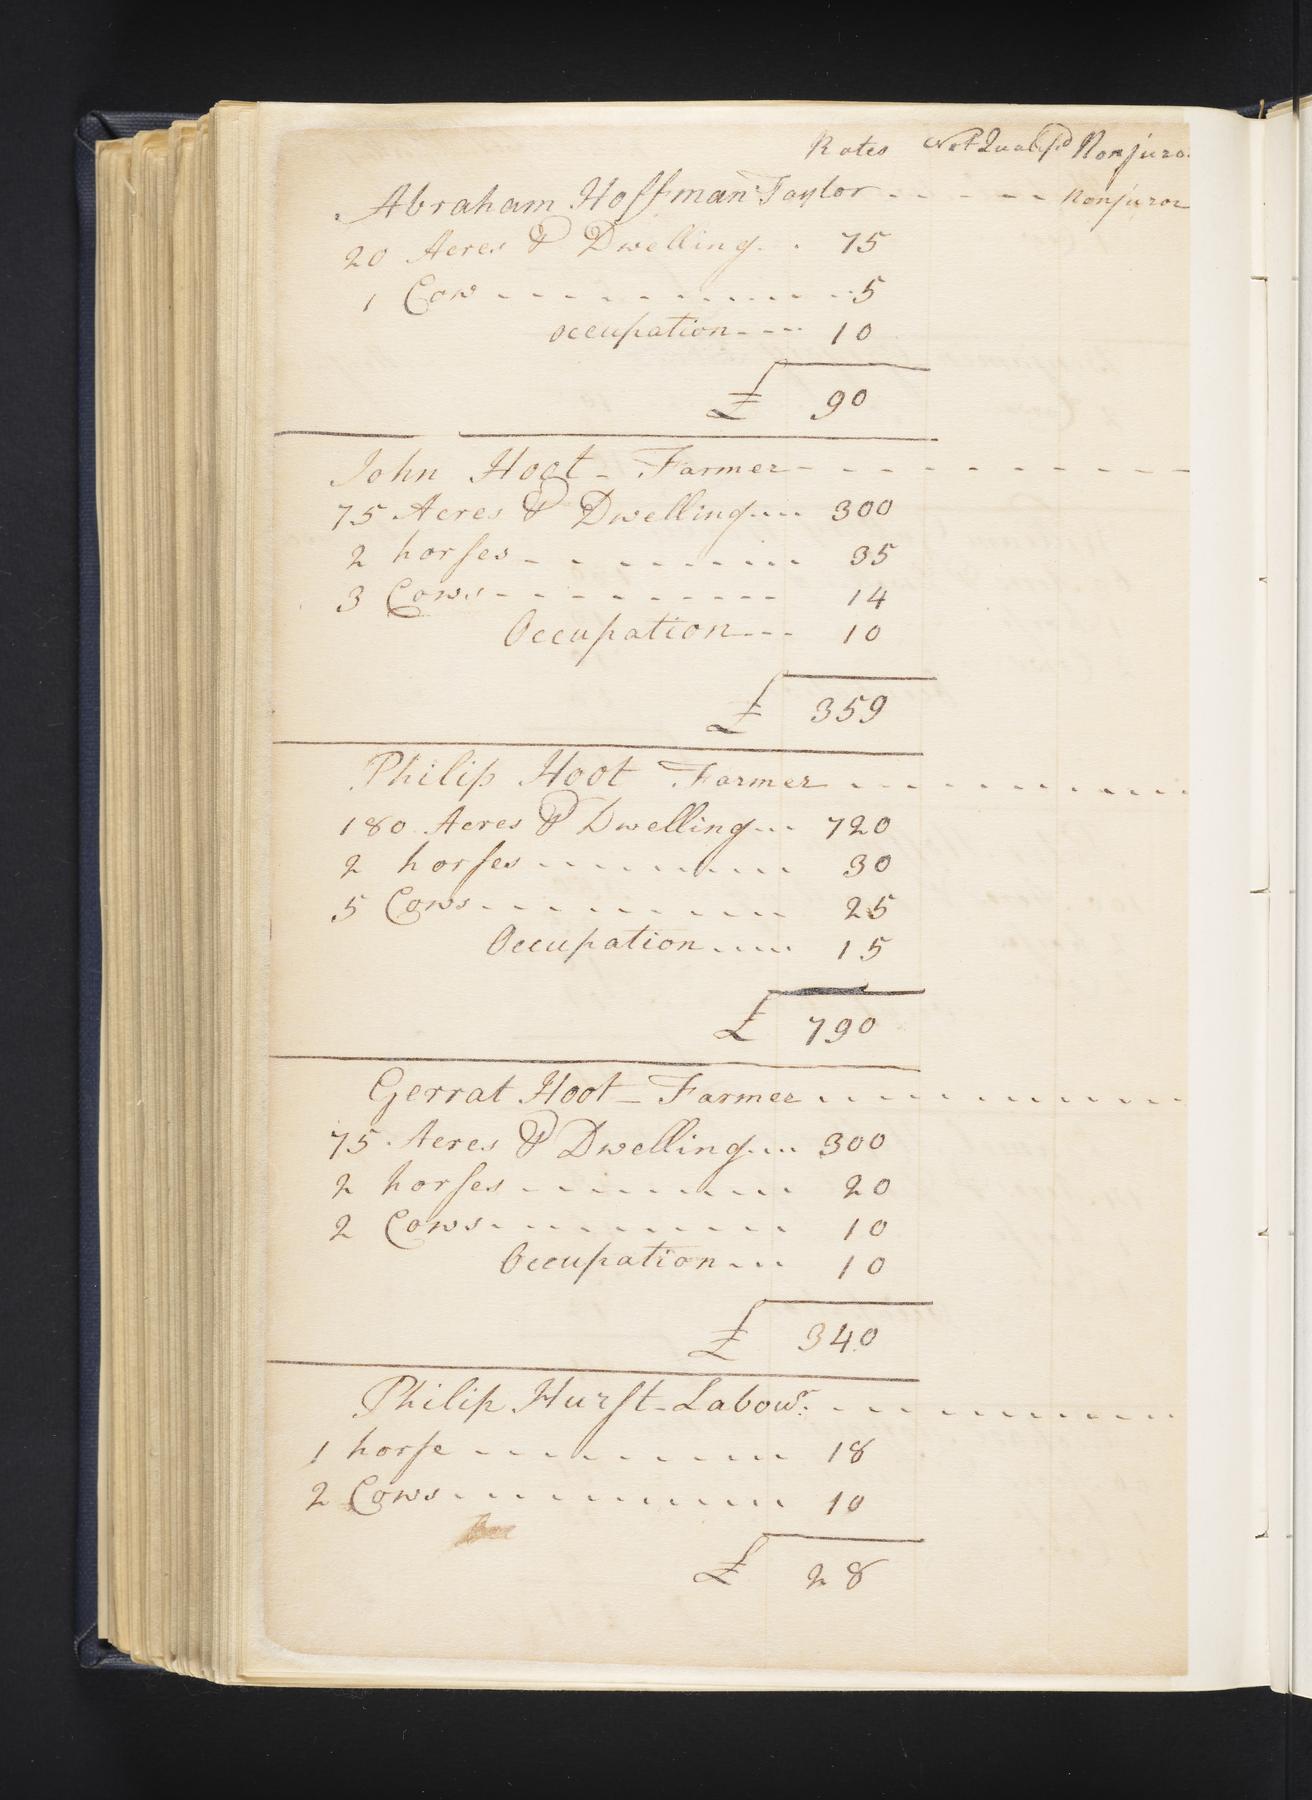 Rates Not Qualifd Nonjuro
Abraham Hoffman Taylor - - - - - - Nonjuror
20 Acres & Dwelling - - 75
1 Cow - - - - - - - - - - 5
occupation - - - - 10
£ 90
John Hoot - Farmer - - - - - - - - - -
75 Acres & Dwelling - - - 300
2 horses - - - - - - - - 35
3 Cows - - - - - - - - - - 14
Occupation - - - 10
£ 359
Philip Hoot Farmer - - - - - - - - - -
180 Acres & Dwelling - - - 720
2 horses - - - - - - - - - 30
5 Cows - - - - - - - - - - 25
Occupation - - - - 15
£ 790
Gerrat Hoot - Farmer - - - - - - - - - -
75 Acres & Dwelling - - - 300
2 horses - - - - - - - - - 20
2 Cows - - - - - - - - - - 10
Occupation - - - 10
£ 340
Philip Hurst - Labour. - - - - - - - - - -
1 horse - - - - - - - - - 18
2 Cows - - - - - - - - - - 10
£ 28